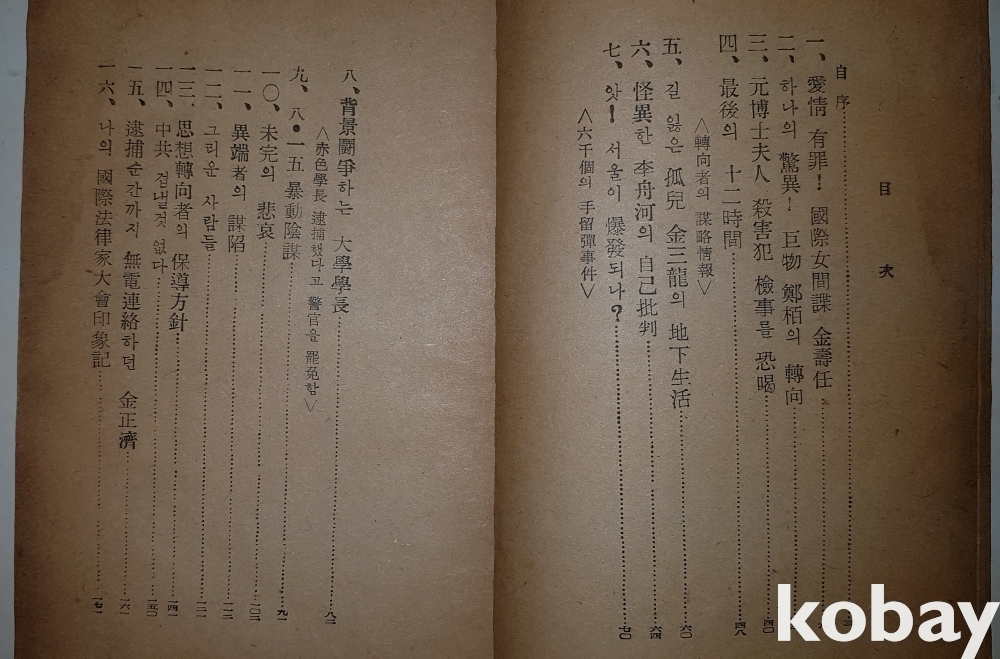 目次
自序 三
一、愛情 有罪! 國際女間諜 金壽任
二、하나의 驚異! 巨物 鄭栢의 轉向
三、元博士夫人 殺害犯 檢事를 恐喝 四〇
四、最後의 十二時間 四八
<轉向者의 謀略情報>
五、길 잃은 孤兒 金三龍의 地下生活 六〇
六、怪異한 李舟河의 自己批判 六四
七、앗! 서울이 爆發되나? 七〇
<六千個의 手留彈事件>
八、背景鬪爭하는 大學學長 八二
<赤色學長 逮捕했다고 警官을 罷免함>
九、八•一五 暴動陰謀 九一
一〇、未完의 悲哀 一〇二
一一、異端者의 謀陷 一一二
一二、그리운 사람들 一二二
一三、思想轉向者의 保導方針 一四一
一四、中共 겁낼것 없다 一五〇
一五、逮捕순간까지 無電連絡하던 金正濟 一六一
一六、나의 國際法律家大會印象記 一七一
kobay